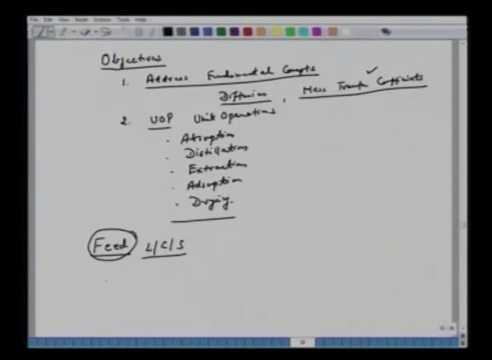 Objectives
1. Address Fundamental Concepts
Diffusion, Mass Transfer Coefficients
2. UOP Unit Operations
· Absorption
· Distillation
· Extraction
· Adsorption
· Drying
Feed L/G/S